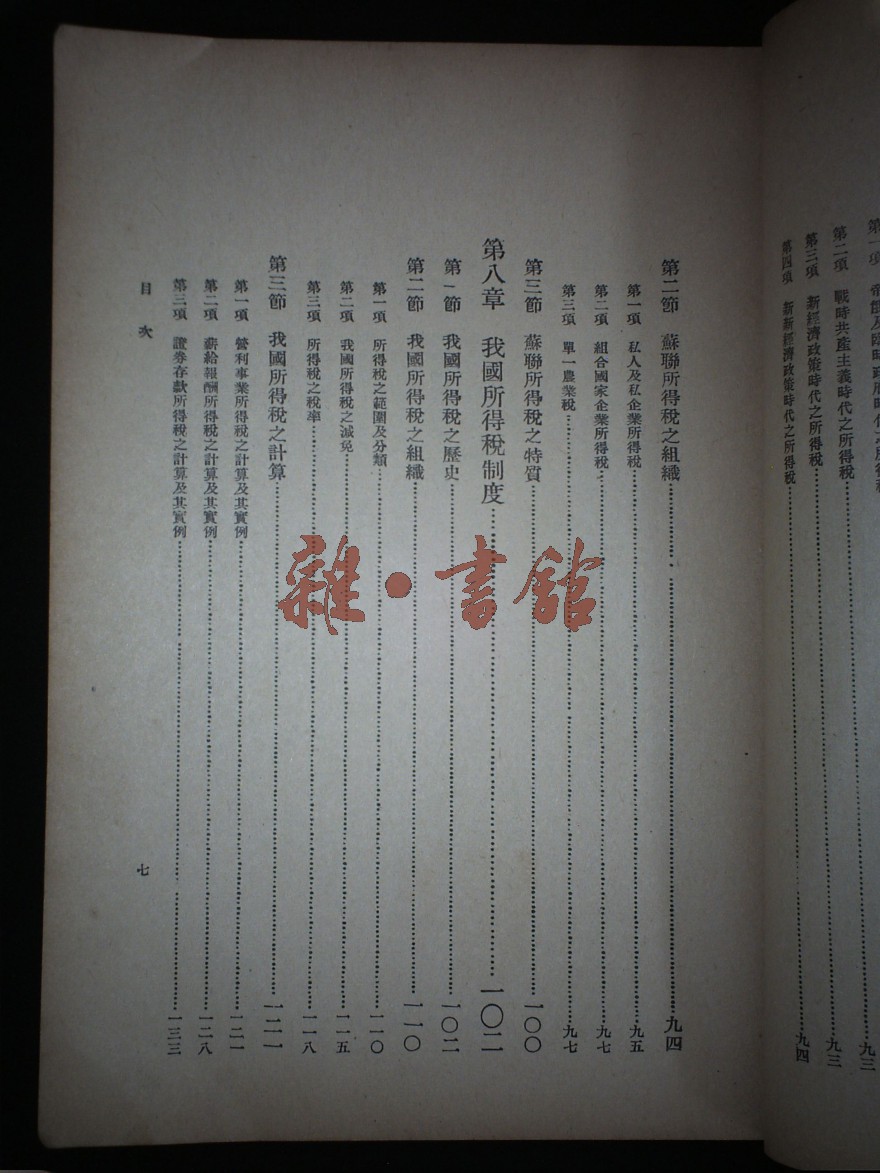 帝國及臨時政府時代之所得稅 九三
第二項 戰時共產主義時代之所得稅 九三
第三項 新經濟政策時代之所得稅
第四項 新新經濟政策時代之所得稅 九四
第二節 蘇聯所得稅之組織 九四
第一項 私人及私企業所得稅 九五
第二項 組合國家企業所得稅 九七
第三項 單一農業稅 九七
第三節 蘇聯所得稅之特質 一〇〇
第八章 我國所得稅制度 一〇二
第一節 我國所得稅之歷史 一〇二
第二節 我國所得稅之組織 一一〇
第一項 所得稅之範圍及分類 一一〇
第二項 我國所得稅之減免 一一五
第三項 所得稅之稅率 一一八
第三節 我國所得稅之計算 一二一
第一項 營利事業所得稅之計算及其實例 一二一
第二項 薪給報酬所得稅之計算及其實例 一二八
第三項 證券存款所得稅之計算及其實例 一三三
目次 七
雜·書館